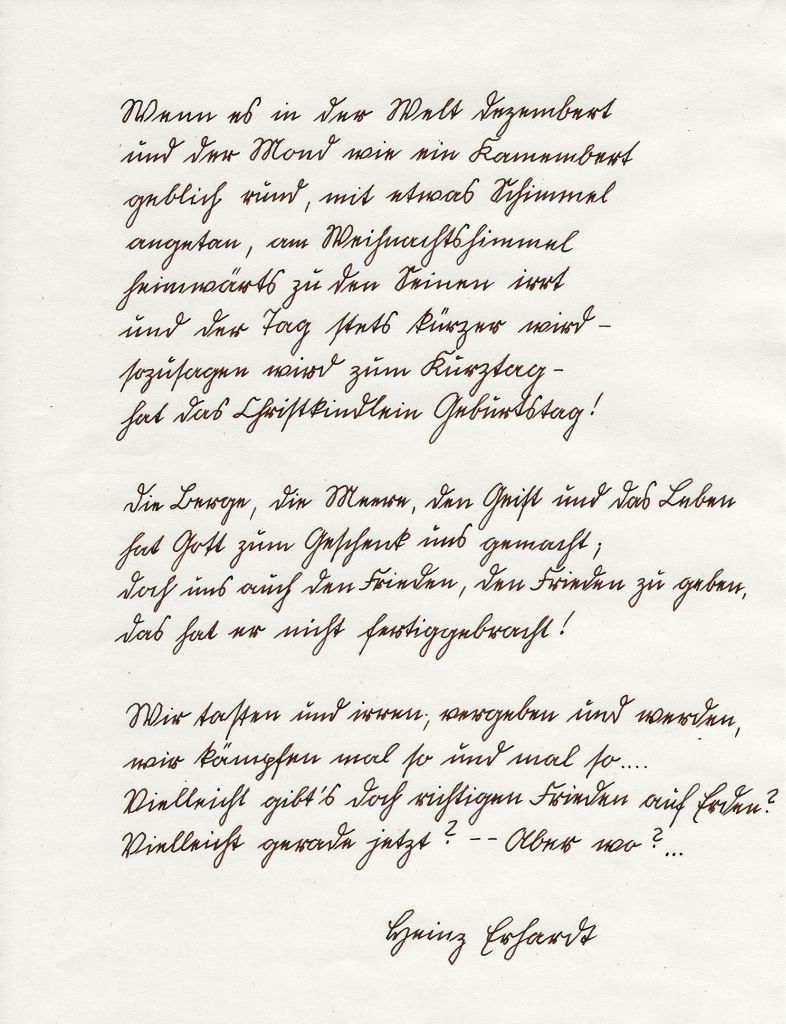 Wenn es in der Welt dezembert
und der Mond wie ein Kamembert
geblich rund, mit etwas Schimmel
angetan, am Weihnachtshimmel
heimwärts zu den Seinen irrt
und der Tag stets kürzer wird –
sozusagen wird zum Kurztag –
hat das Christkindlein Geburtstag!
Die Berge, die Meere, den Geist und das Leben
hat Gott zum Geschenk uns gemacht;
doch uns auch den Frieden, den Frieden zu geben,
das hat er nicht fertiggebracht!
Wir tasten und irren, vergeben und werden,
wir kämpfen mal so und mal so....
Vielleicht gibt's doch richtigen Frieden auf Erden?
Vielleicht gerade jetzt? -- Aber wo?...
Heinz Erhardt